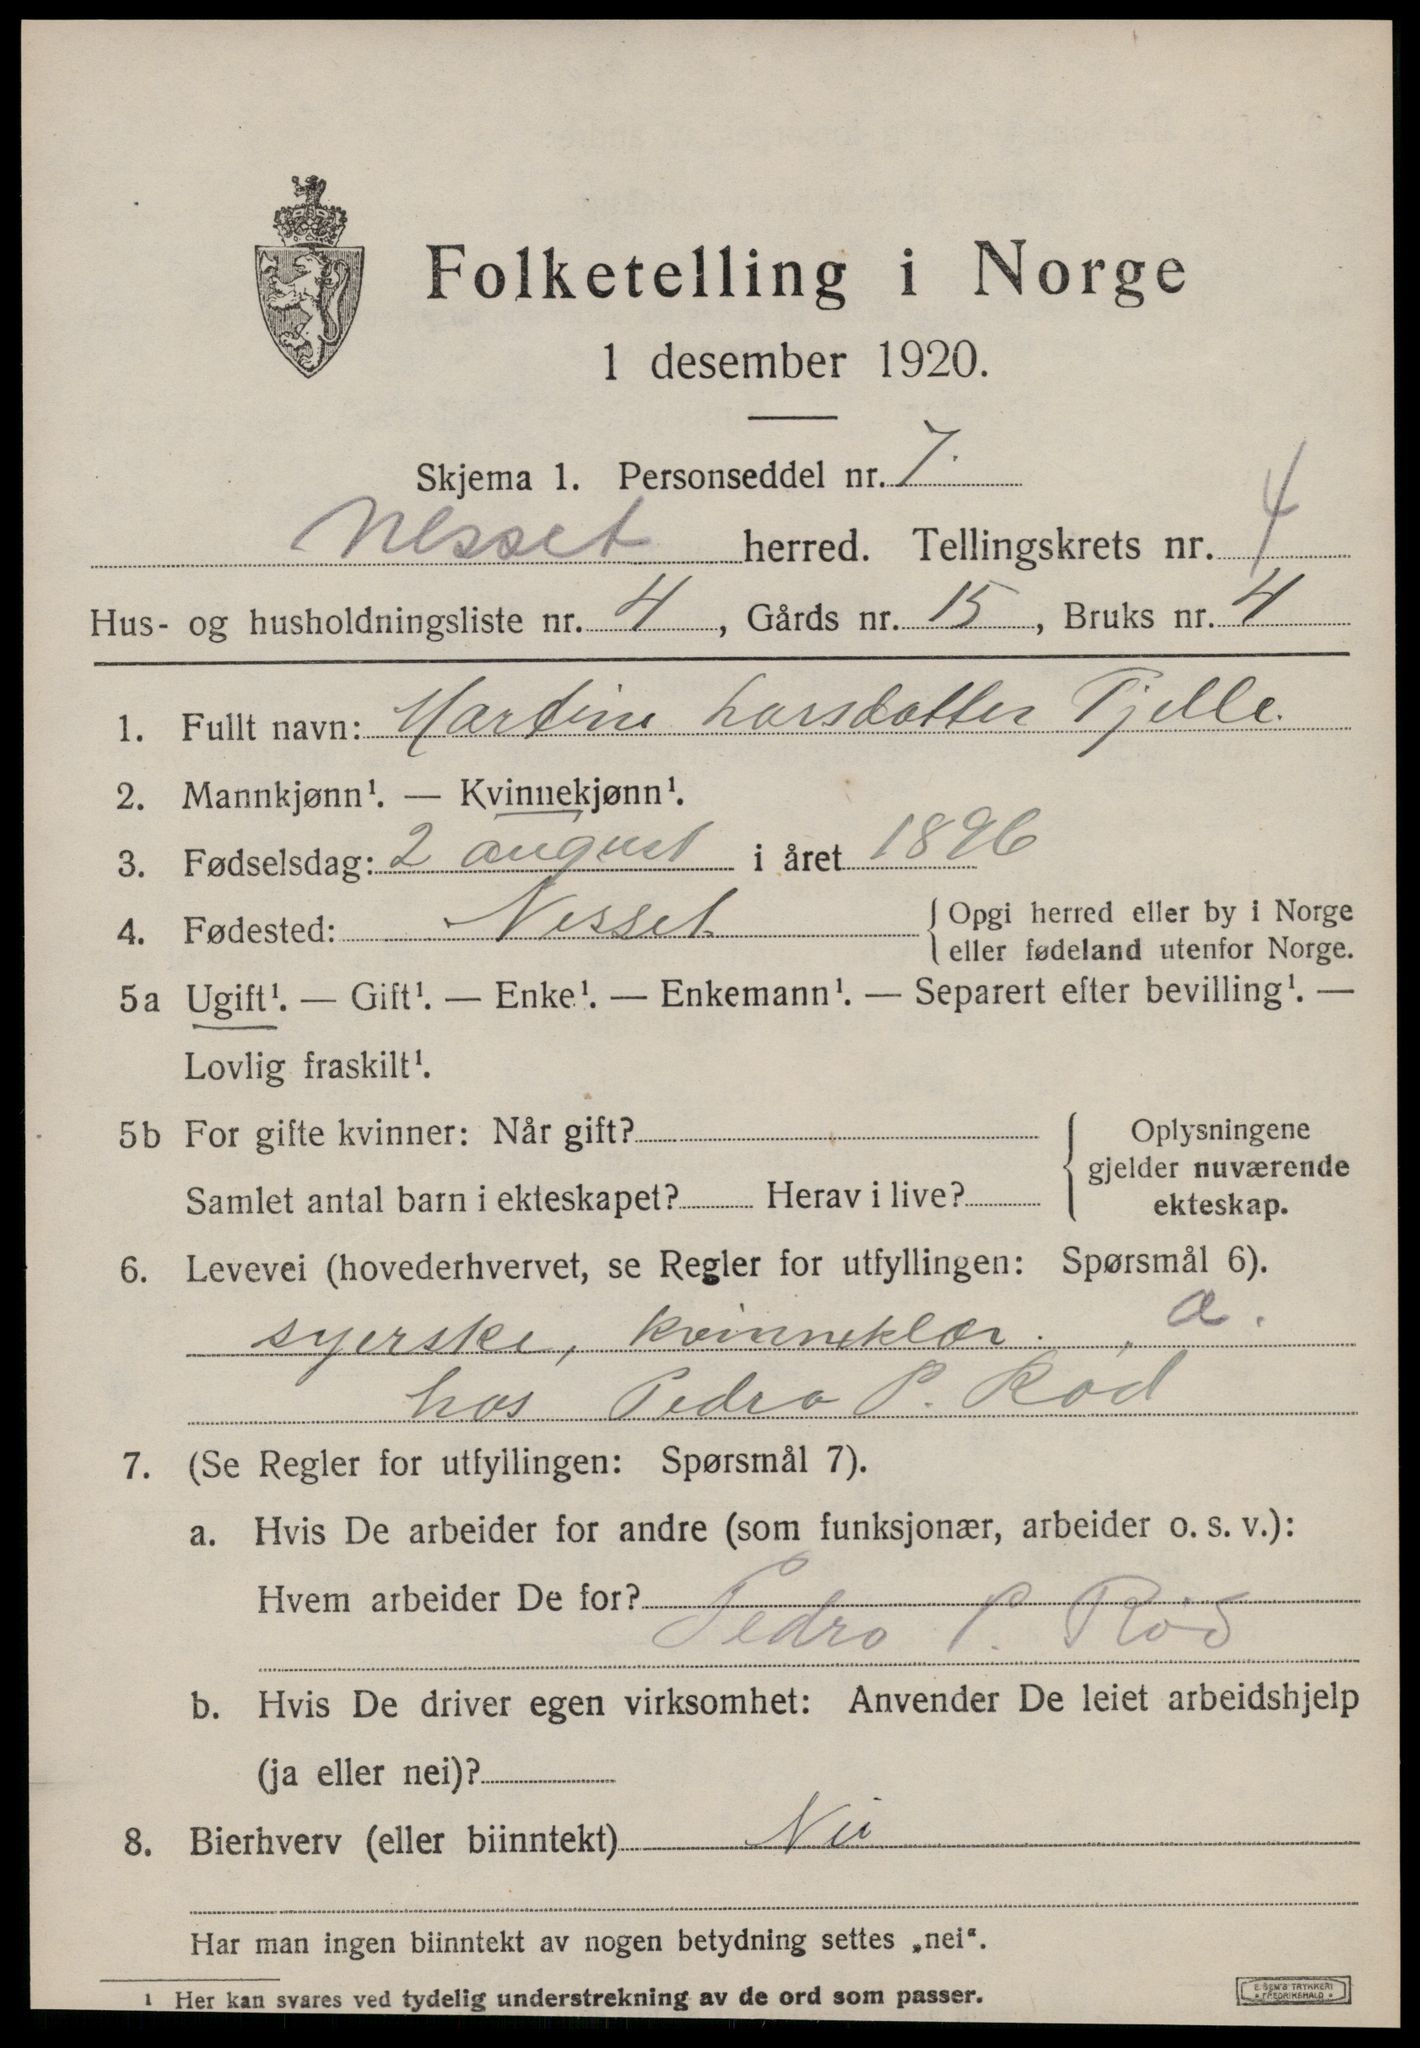 Folketelling i Norge
1 desember 1920.
Skjema 1. Personseddel nr. 7.
Nesset herred. Tellingskrets nr. 4
Hus- og husholdningsliste nr. 4, Gårds nr. 15, Bruks nr. 4
1. Fullt navn: Martine Larsdatter Tjelle.
2. Mannkjønn¹. — Kvinnekjønn¹.
3. Fødselsdag: 2 august i året 1896
4. Fødested: Nesset { Opgi herred eller by i Norge
eller fødeland utenfor Norge.
5a Ugift¹. — Gift¹. — Enke¹. — Enkemann¹. — Separert efter bevilling¹. —
Lovlig fraskilt¹.
5b For gifte kvinner: Når gift?
Samlet antal barn i ekteskapet? Herav i live?
{ Oplysningene
gjelder nuværende
ekteskap.
6. Levevei (hovederhvervet, se Regler for utfyllingen: Spørsmål 6).
syerske, kvinneklær. a.
hos Pedro P. Rød
7. (Se Regler for utfyllingen: Spørsmål 7).
a. Hvis De arbeider for andre (som funksjonær, arbeider o. s. v.):
Hvem arbeider De for?
Pedro P. Rød
b. Hvis De driver egen virksomhet: Anvender De leiet arbeidshjelp
(ja eller nei)?
8. Bierhverv (eller biinntekt) Nei
Har man ingen biinntekt av nogen betydning settes „nei“.
¹ Her kan svares ved tydelig understrekning av de ord som passer.
E. SEM'S TRYKKERI
FREDRIKSHALD